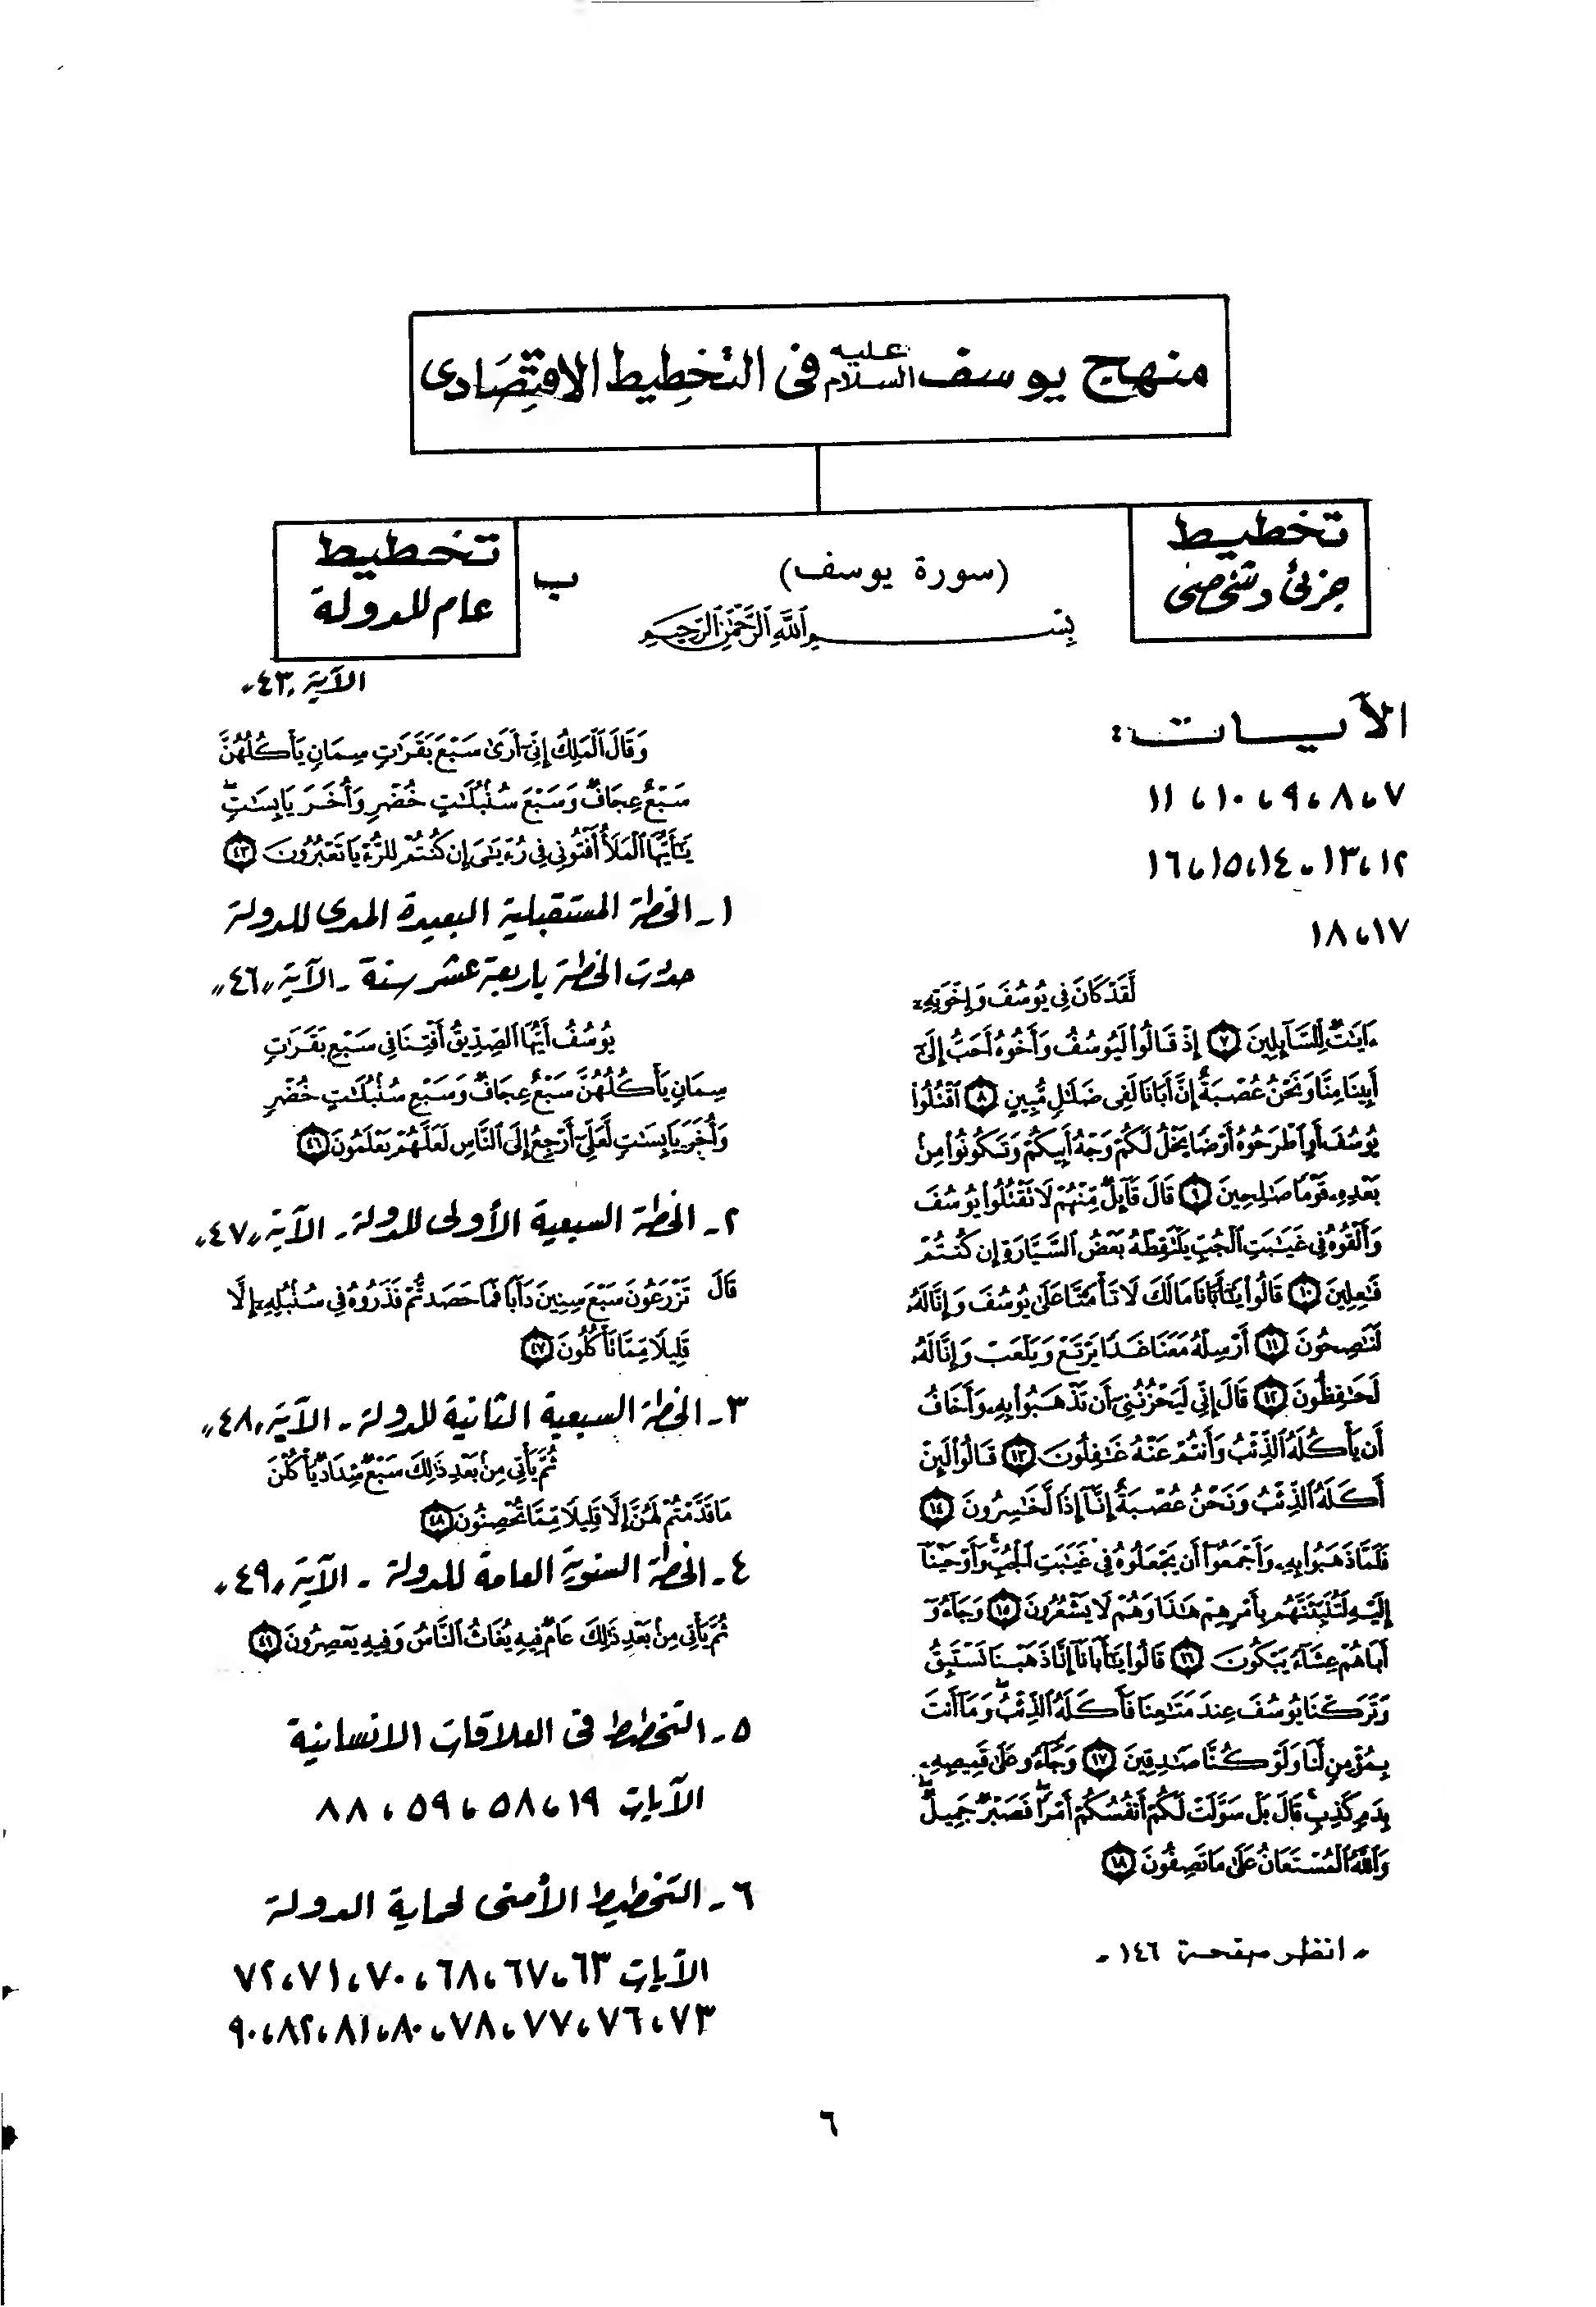 منهج يوسف عليه السلام فى التخطيط الاقتصادى
تخطيط
جزئى وشخصى
(سورة يوسف)
بِسْمِ ٱللَّهِ ٱلرَّحْمَٰنِ ٱلرَّحِيمِ
ب
تخطيط
عام للدولة
الآيات :
٧، ٨، ٩، ١٠، ١١
١٢، ١٣، ١٤، ١٥، ١٦
١٧، ١٨
لَّقَدْ كَانَ فِى يُوسُفَ وَإِخْوَتِهِۦٓ
ءَايَٰتٌ لِّلسَّآئِلِينَ ٧ إِذْ قَالُوا۟ لَيُوسُفُ وَأَخُوهُ أَحَبُّ إِلَىٰٓ
أَبِينَا مِنَّا وَنَحْنُ عُصْبَةٌ إِنَّ أَبَانَا لَفِى ضَلَٰلٍ مُّبِينٍ ٨ ٱقْتُلُوا۟
يُوسُفَ أَوِ ٱطْرَحُوهُ أَرْضًا يَخْلُ لَكُمْ وَجْهُ أَبِيكُمْ وَتَكُونُوا۟ مِنۢ
بَعْدِهِۦ قَوْمًا صَٰلِحِينَ ٩ قَالَ قَآئِلٌ مِّنْهُمْ لَا تَقْتُلُوا۟ يُوسُفَ
وَأَلْقُوهُ فِى غَيَٰبَتِ ٱلْجُبِّ يَلْتَقِطْهُ بَعْضُ ٱلسَّيَّارَةِ إِن كُنتُمْ
فَٰعِلِينَ ١٠ قَالُوا۟ يَٰٓأَبَانَا مَالَكَ لَا تَأْمَ۫نَّا عَلَىٰ يُوسُفَ وَإِنَّا لَهُۥ
لَنَٰصِحُونَ ١١ أَرْسِلْهُ مَعَنَا غَدًا يَرْتَعْ وَيَلْعَبْ وَإِنَّا لَهُۥ
لَحَٰفِظُونَ ١٢ قَالَ إِنِّى لَيَحْزُنُنِىٓ أَن تَذْهَبُوا۟ بِهِۦ وَأَخَافُ
أَن يَأْكُلَهُ ٱلذِّئْبُ وَأَنتُمْ عَنْهُ غَٰفِلُونَ ١٣ قَالُوا۟ لَئِنْ
أَكَلَهُ ٱلذِّئْبُ وَنَحْنُ عُصْبَةٌ إِنَّآ إِذًا لَّخَٰسِرُونَ ١٤
فَلَمَّا ذَهَبُوا۟ بِهِۦ وَأَجْمَعُوٓا۟ أَن يَجْعَلُوهُ فِى غَيَٰبَتِ ٱلْجُبِّ وَأَوْحَيْنَآ
إِلَيْهِ لَتُنَبِّئَنَّهُم بِأَمْرِهِمْ هَٰذَا وَهُمْ لَا يَشْعُرُونَ ١٥ وَجَآءُوٓ
أَبَاهُمْ عِشَآءً يَبْكُونَ ١٦ قَالُوا۟ يَٰٓأَبَانَآ إِنَّا ذَهَبْنَا نَسْتَبِقُ
وَتَرَكْنَا يُوسُفَ عِندَ مَتَٰعِنَا فَأَكَلَهُ ٱلذِّئْبُ وَمَآ أَنتَ
بِمُؤْمِنٍ لَّنَا وَلَوْ كُنَّا صَٰدِقِينَ ١٧ وَجَآءُو عَلَىٰ قَمِيصِهِۦ
بِدَمٍ كَذِبٍ قَالَ بَلْ سَوَّلَتْ لَكُمْ أَنفُسُكُمْ أَمْرًا فَصَبْرٌ جَمِيلٌ
وَٱللَّهُ ٱلْمُسْتَعَانُ عَلَىٰ مَا تَصِفُونَ ١٨
- انظر صفحة ١٤٦ -
الآية «٤٣»
وَقَالَ ٱلْمَلِكُ إِنِّىٓ أَرَىٰ سَبْعَ بَقَرَٰتٍ سِمَانٍ يَأْكُلُهُنَّ
سَبْعٌ عِجَافٌ وَسَبْعَ سُنۢبُلَٰتٍ خُضْرٍ وَأُخَرَ يَابِسَٰتٍ
يَٰٓأَيُّهَا ٱلْمَلَأُ أَفْتُونِى فِى رُءْيَٰىَ إِن كُنتُمْ لِلرُّءْيَا تَعْبُرُونَ ٤٣
١- الخطة المستقبلية البعيدة المدى للدولة
حددت الخطة باربعة عشر سنة - الآية «٤٦»
يُوسُفُ أَيُّهَا ٱلصِّدِّيقُ أَفْتِنَا فِى سَبْعِ بَقَرَٰتٍ
سِمَانٍ يَأْكُلُهُنَّ سَبْعٌ عِجَافٌ وَسَبْعِ سُنۢبُلَٰتٍ خُضْرٍ
وَأُخَرَ يَابِسَٰتٍ لَّعَلِّىٓ أَرْجِعُ إِلَى ٱلنَّاسِ لَعَلَّهُمْ يَعْلَمُونَ ٤٦
٢- الخطة السبعية الأولى للدولة - الآية «٤٧»
قَالَ تَزْرَعُونَ سَبْعَ سِنِينَ دَأَبًا فَمَا حَصَدتُّمْ فَذَرُوهُ فِى سُنۢبُلِهِۦٓ إِلَّا
قَلِيلًا مِّمَّا تَأْكُلُونَ ٤٧
٣- الخطة السبعية الثانية للدولة - الآية «٤٨»
ثُمَّ يَأْتِى مِنۢ بَعْدِ ذَٰلِكَ سَبْعٌ شِدَادٌ يَأْكُلْنَ
مَا قَدَّمْتُمْ لَهُنَّ إِلَّا قَلِيلًا مِّمَّا تُحْصِنُونَ ٤٨
٤- الخطة السنوية العامة للدولة - الآية «٤٩»
ثُمَّ يَأْتِى مِنۢ بَعْدِ ذَٰلِكَ عَامٌ فِيهِ يُغَاثُ ٱلنَّاسُ وَفِيهِ يَعْصِرُونَ ٤٩
٥- التخطيط فى العلاقات الانسانية
الآيات ١٩، ٥٨، ٥٩، ٨٨
٦- التخطيط الأمنى لحماية الدولة
الآيات ٦٣، ٦٧، ٦٨، ٧٠، ٧١، ٧٢
٧٣، ٧٦، ٧٧، ٧٨، ٨٠، ٨١، ٨٢، ٩٠
٦